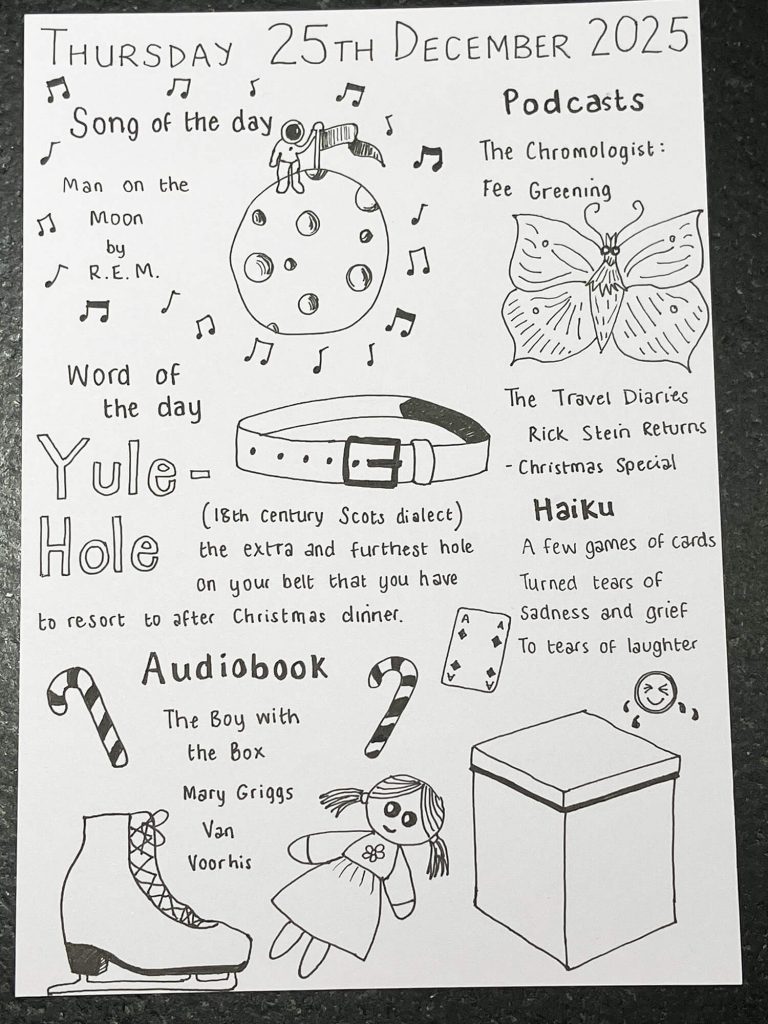 THURSDAY 25TH DECEMBER 2025
Song of the day
Man on the
Moon
by
R.E.M.
Podcasts
The Chromologist:
Fee Greening
The Travel Diaries
Rick Stein Returns
- Christmas Special
Word of
the day
Yule-
Hole
(18th Century Scots dialect)
the extra and furthest hole
on your belt that you have
to resort to after Christmas dinner.
Haiku
A few games of cards
Turned tears of
Sadness and grief
To tears of laughter
A A
A
Audiobook
The Boy with
the Box
Mary Griggs
Van
Voorhis